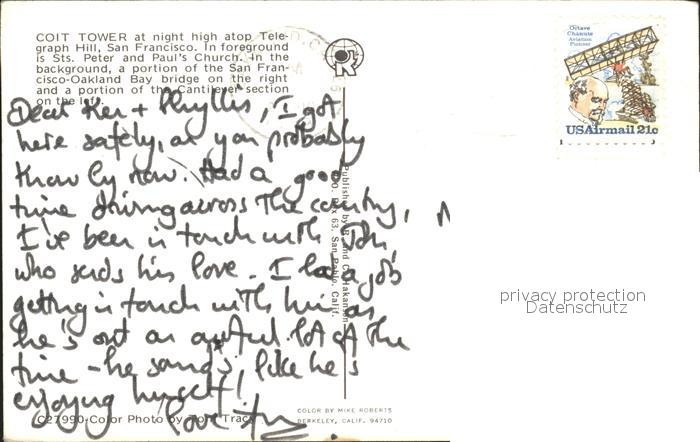 COIT TOWER at night high atop Tele-
graph Hill, San Francisco. In foreground
is Sts. Peter and Paul's Church. In the
background, a portion of the San Fran-
cisco-Oakland Bay bridge on the right
and a portion of the Cantilever section
on the left.
Dear Ken + Phyllis, I got
here safely, as you probably
know by now. Had a good
time driving across the country,
I've been in touch with
who sends his love. I had a job
getting in touch with him as
he's out an awful lot of the
time - he sounds like he's
enjoying himself!
Love
C27990-Color Photo by Tom Tracy
Published by R. and C. Hakanson
P.O. Box 63, San Pablo, Calif.
COLOR BY MIKE ROBERTS
BERKELEY, CALIF. 94710
Octave
Chanute
Aviation
Pioneer
USAirmail 21c
privacy protection
Datenschutz